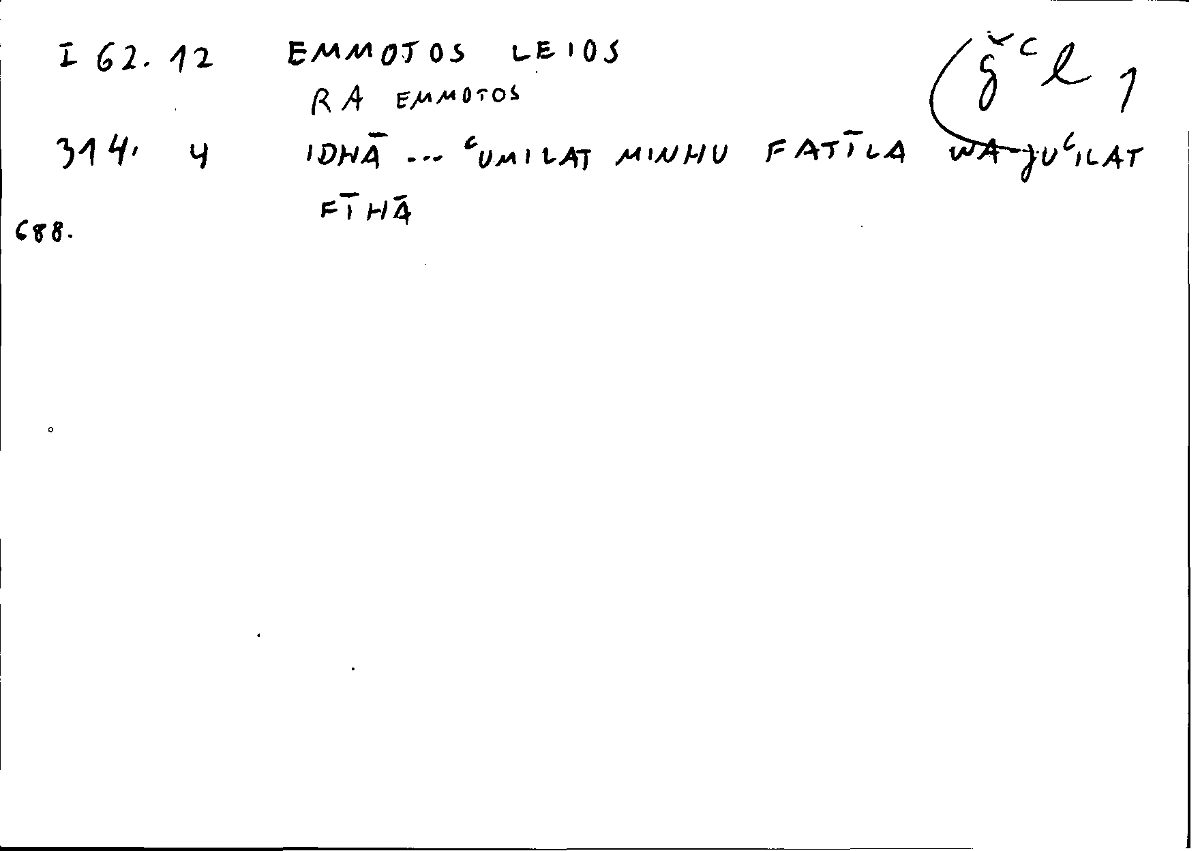 I 62. 12 EMMOTOS LEIOS ǧʿl 1
RA EMMOTOS
314, 4 IDHĀ ... ʿUMILAT MINHU FATĪLA WA-JUʿILAT
FĪHĀ
688.